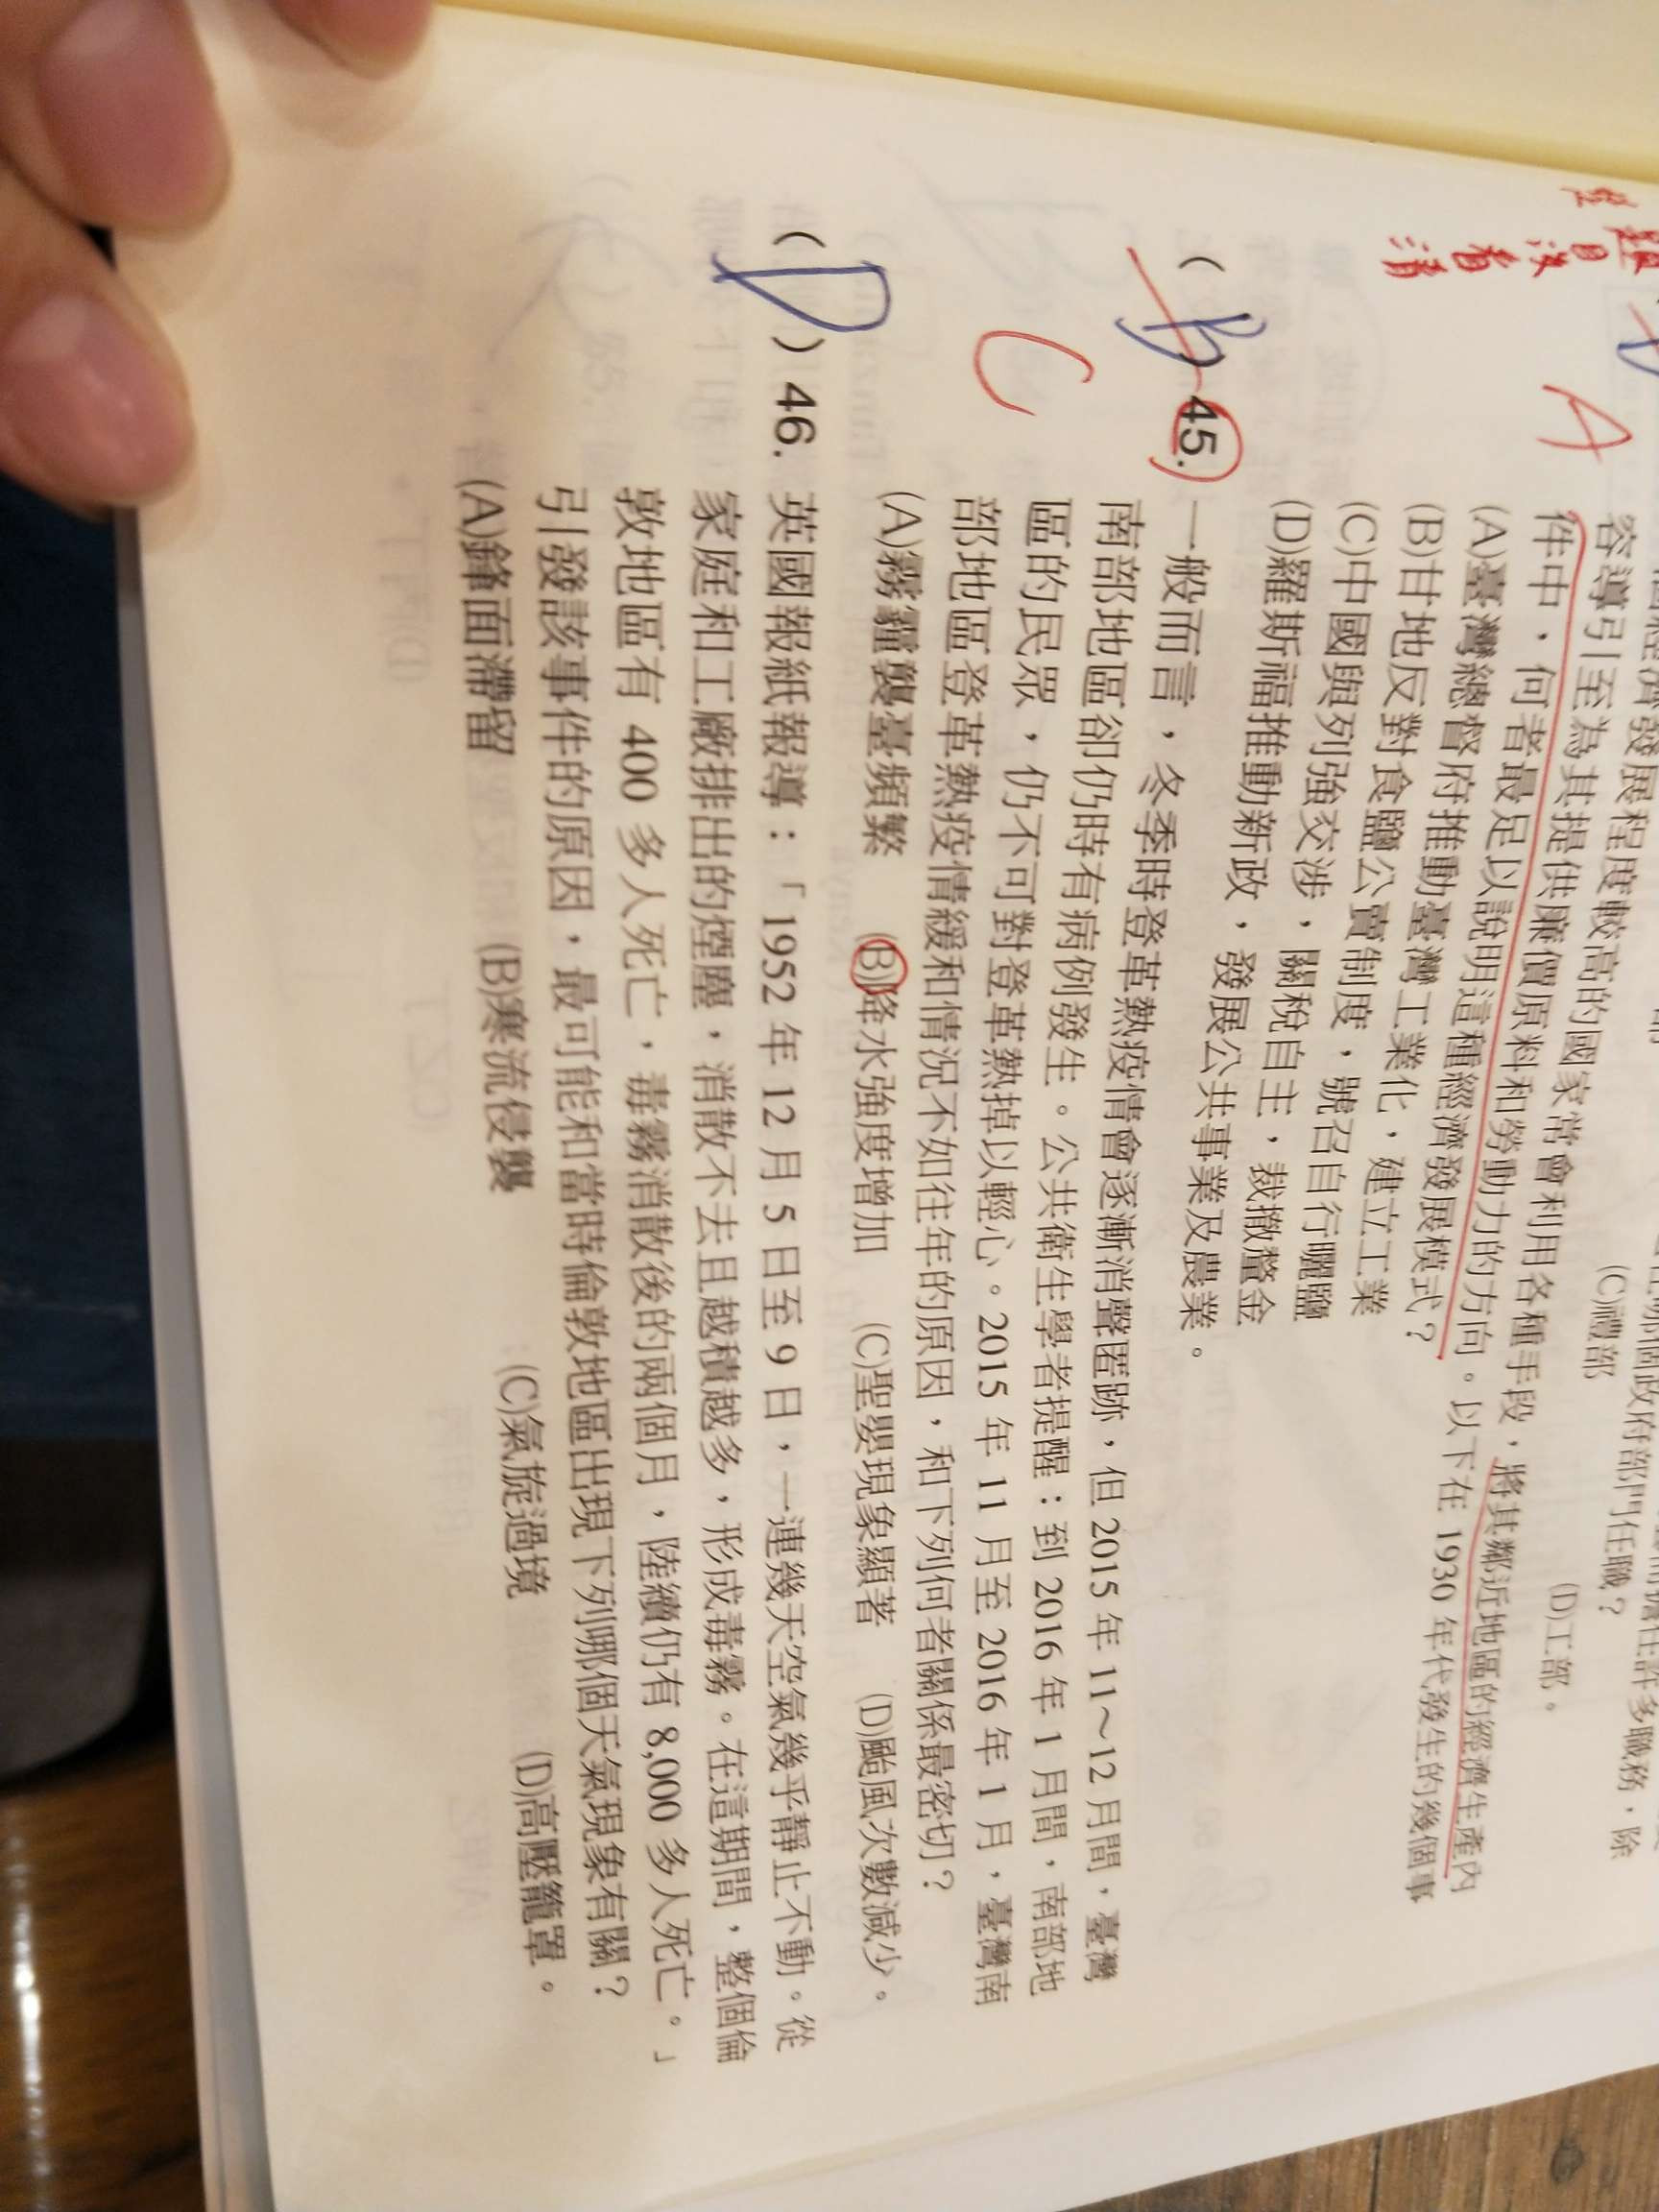 題目沒看清
A
容導引至為其提供廉價原料和勞動力的方向。以下在 1930 年代發生的幾個事
件中，何者最足以說明這種經濟發展模式？
(A)臺灣總督府推動臺灣工業化，建立工業
(B)甘地反對食鹽公賣制度，號召自行曬鹽
(C)中國與列強交涉，關稅自主，裁撤釐金
(D)羅斯福推動新政，發展公共事業及農業。
( B 45. 一般而言，冬季時登革熱疫情會逐漸消聲匿跡，但 2015 年 11～12 月間，臺灣
C
南部地區卻仍時有病例發生。公共衛生學者提醒：到 2016 年 1 月間，南部地
區的民眾，仍不可對登革熱掉以輕心。2015 年 11 月至 2016 年 1 月，臺灣南
部地區登革熱疫情緩和情況不如往年的原因，和下列何者關係最密切？
(A)霧霾襲臺頻繁 (B)降水強度增加 (C)聖嬰現象顯著 (D)颱風次數減少。
( D ) 46. 英國報紙報導：「1952 年 12 月 5 日至 9 日，一連幾天空氣幾乎靜止不動。從
家庭和工廠排出的煙塵，消散不去且越積越多，形成毒霧。在這期間，整個倫
敦地區有 400 多人死亡，毒霧消散後的兩個月，陸續仍有 8,000 多人死亡。」
引發該事件的原因，最可能和當時倫敦地區出現下列哪個天氣現象有關？
(A)鋒面滯留 (B)寒流侵襲 (C)氣旋過境 (D)高壓籠罩。